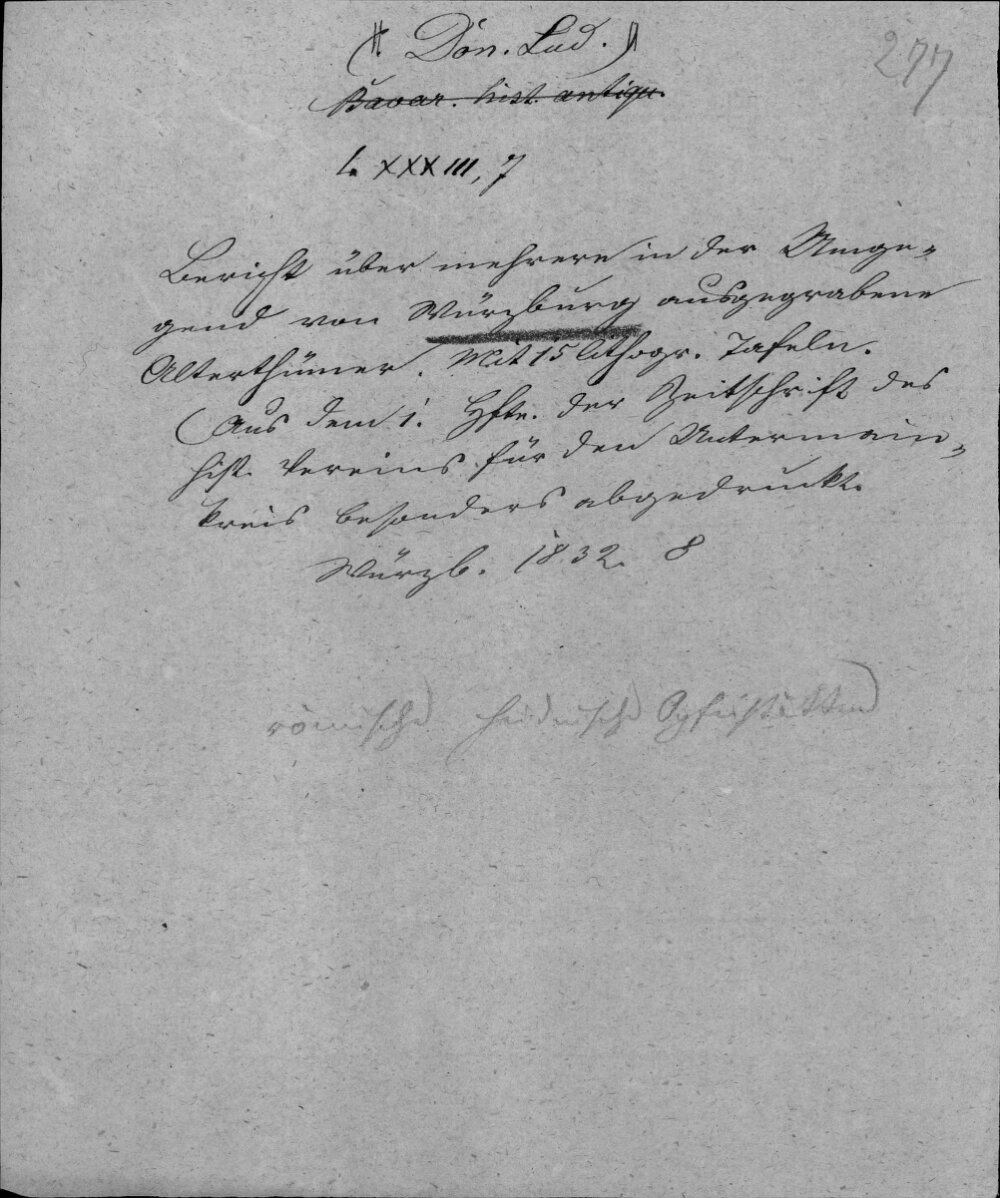 (#. Don. Lud.)
277
Bavar. hist. antiqu.
l. XXXIII, 7
Bericht über mehrere in der Umge-
gend von Würzburg ausgegrabene
Alterthümer. Mit 15 lithogr. Tafeln.
(Aus dem 1. Hfte. der Zeitschrift des
hist. Vereins für den Untermain-
kreis besonders abgedruckt.
Würzb. 1832. 8
römische heidnische